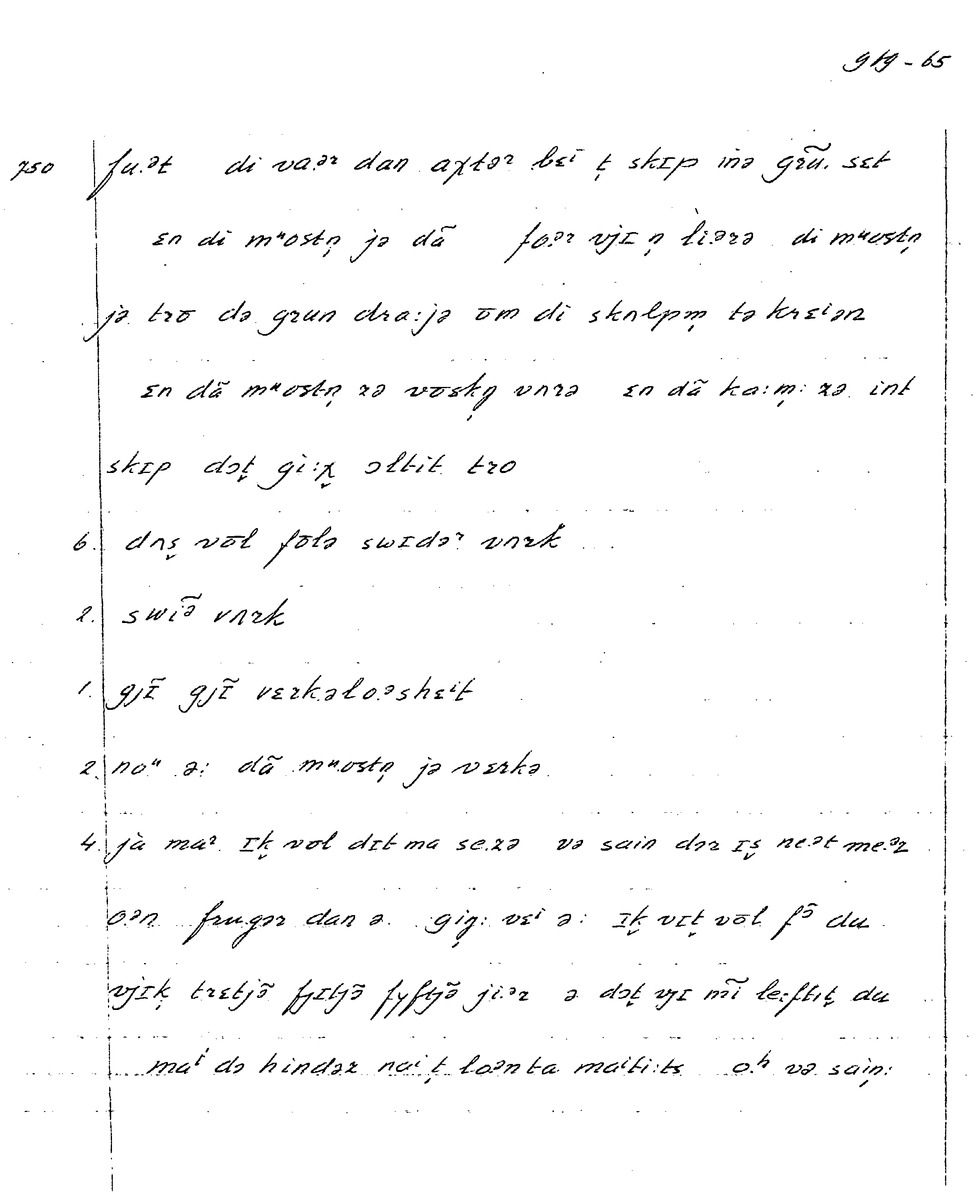 g19 - 65
750 fu.ət di vaəʳ dan aχtəʳ bɛⁱ t̬ skɪp inə grũ. sɛt
ɛn di mᵘostn̩ jə dã fo.ər vjɪ n̩ li:ərə di mᵘostn̩
jə trō də grun dra:jə ōm di skʌlpm̩ tə krɛiən
ɛn dã mᵘostn̩ zə vōskŋ̩ vʌrə ɛn dã ka:m̩: zə int
skɪp dət̬ gi:χ̬ əltit tro
6. dʌs̬ vōl fōlə swɪdəʳ vʌrk
2. swiə̃ vʌrk
1. gjɪ̃ gjɪ̃ vɛrkəloəshɛⁱt
2. noᵘ ə: dã mᵘostn̩ jə vɛrkə
4. jà maʳ ɪk̬ vōl dɪt ma se.zə və sain dər ɪs̬ ne.ət me.ər
o.ən frugər dan ə. giŋ: vɛⁱ ə: ɪk̬ vɪt̬ vōl fɔ̃ du
vjɪk̬ trɛtjõ fjɪtjõ fyftjõ ji.ər ə dət̬ vjɪ mĩ le:ftɪt̬ du
maⁱ də hindər naⁱ t̬ loənta maiti:ts o.ʰ və sain̩: